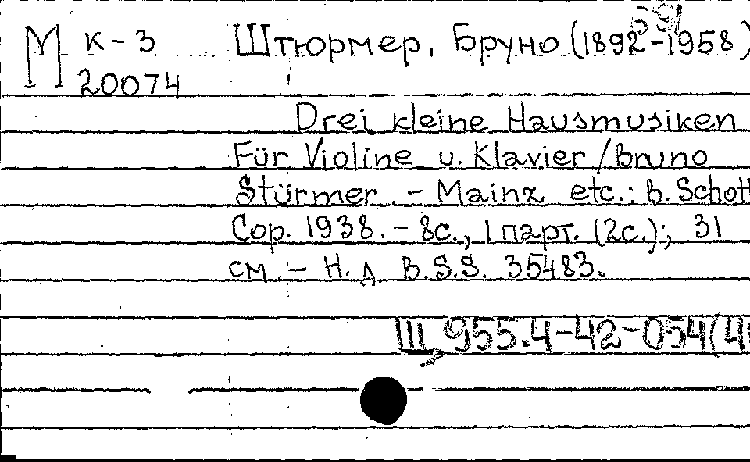 М к-3 Штюрмер, Бруно (1892-1958)
20074
Drei kleine Hausmusiken
Für Violine u. Klavier / Bruno
Stürmer. - Mainz etc.: B. Schott
Cop. 1938. - 8с., 1 парт. (2с.); 31
см. - Н. д. B.S.S. 35483.
Ш 955.4-42-054(4